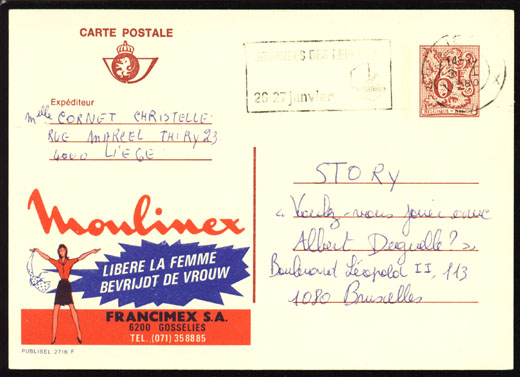 CARTE POSTALE
JOURNEES DES
26-27 janvier
6F
BELGIQUE-BELGIE
Expéditeur
Melle CORNET CHRISTELLE
RUE MARCEL THIRY 23
4000 LIEGE
STORY
« Voulez-vous jouer avec
Albert Deguelle? »
Boulevard Léopold II, 113
1080 Bruxelles
Moulinex
LIBERE LA FEMME
BEVRIJDT DE VROUW
FRANCIMEX S.A.
6200 GOSSELIES
TEL. (071) 358885
PUBLIBEL 2716 F